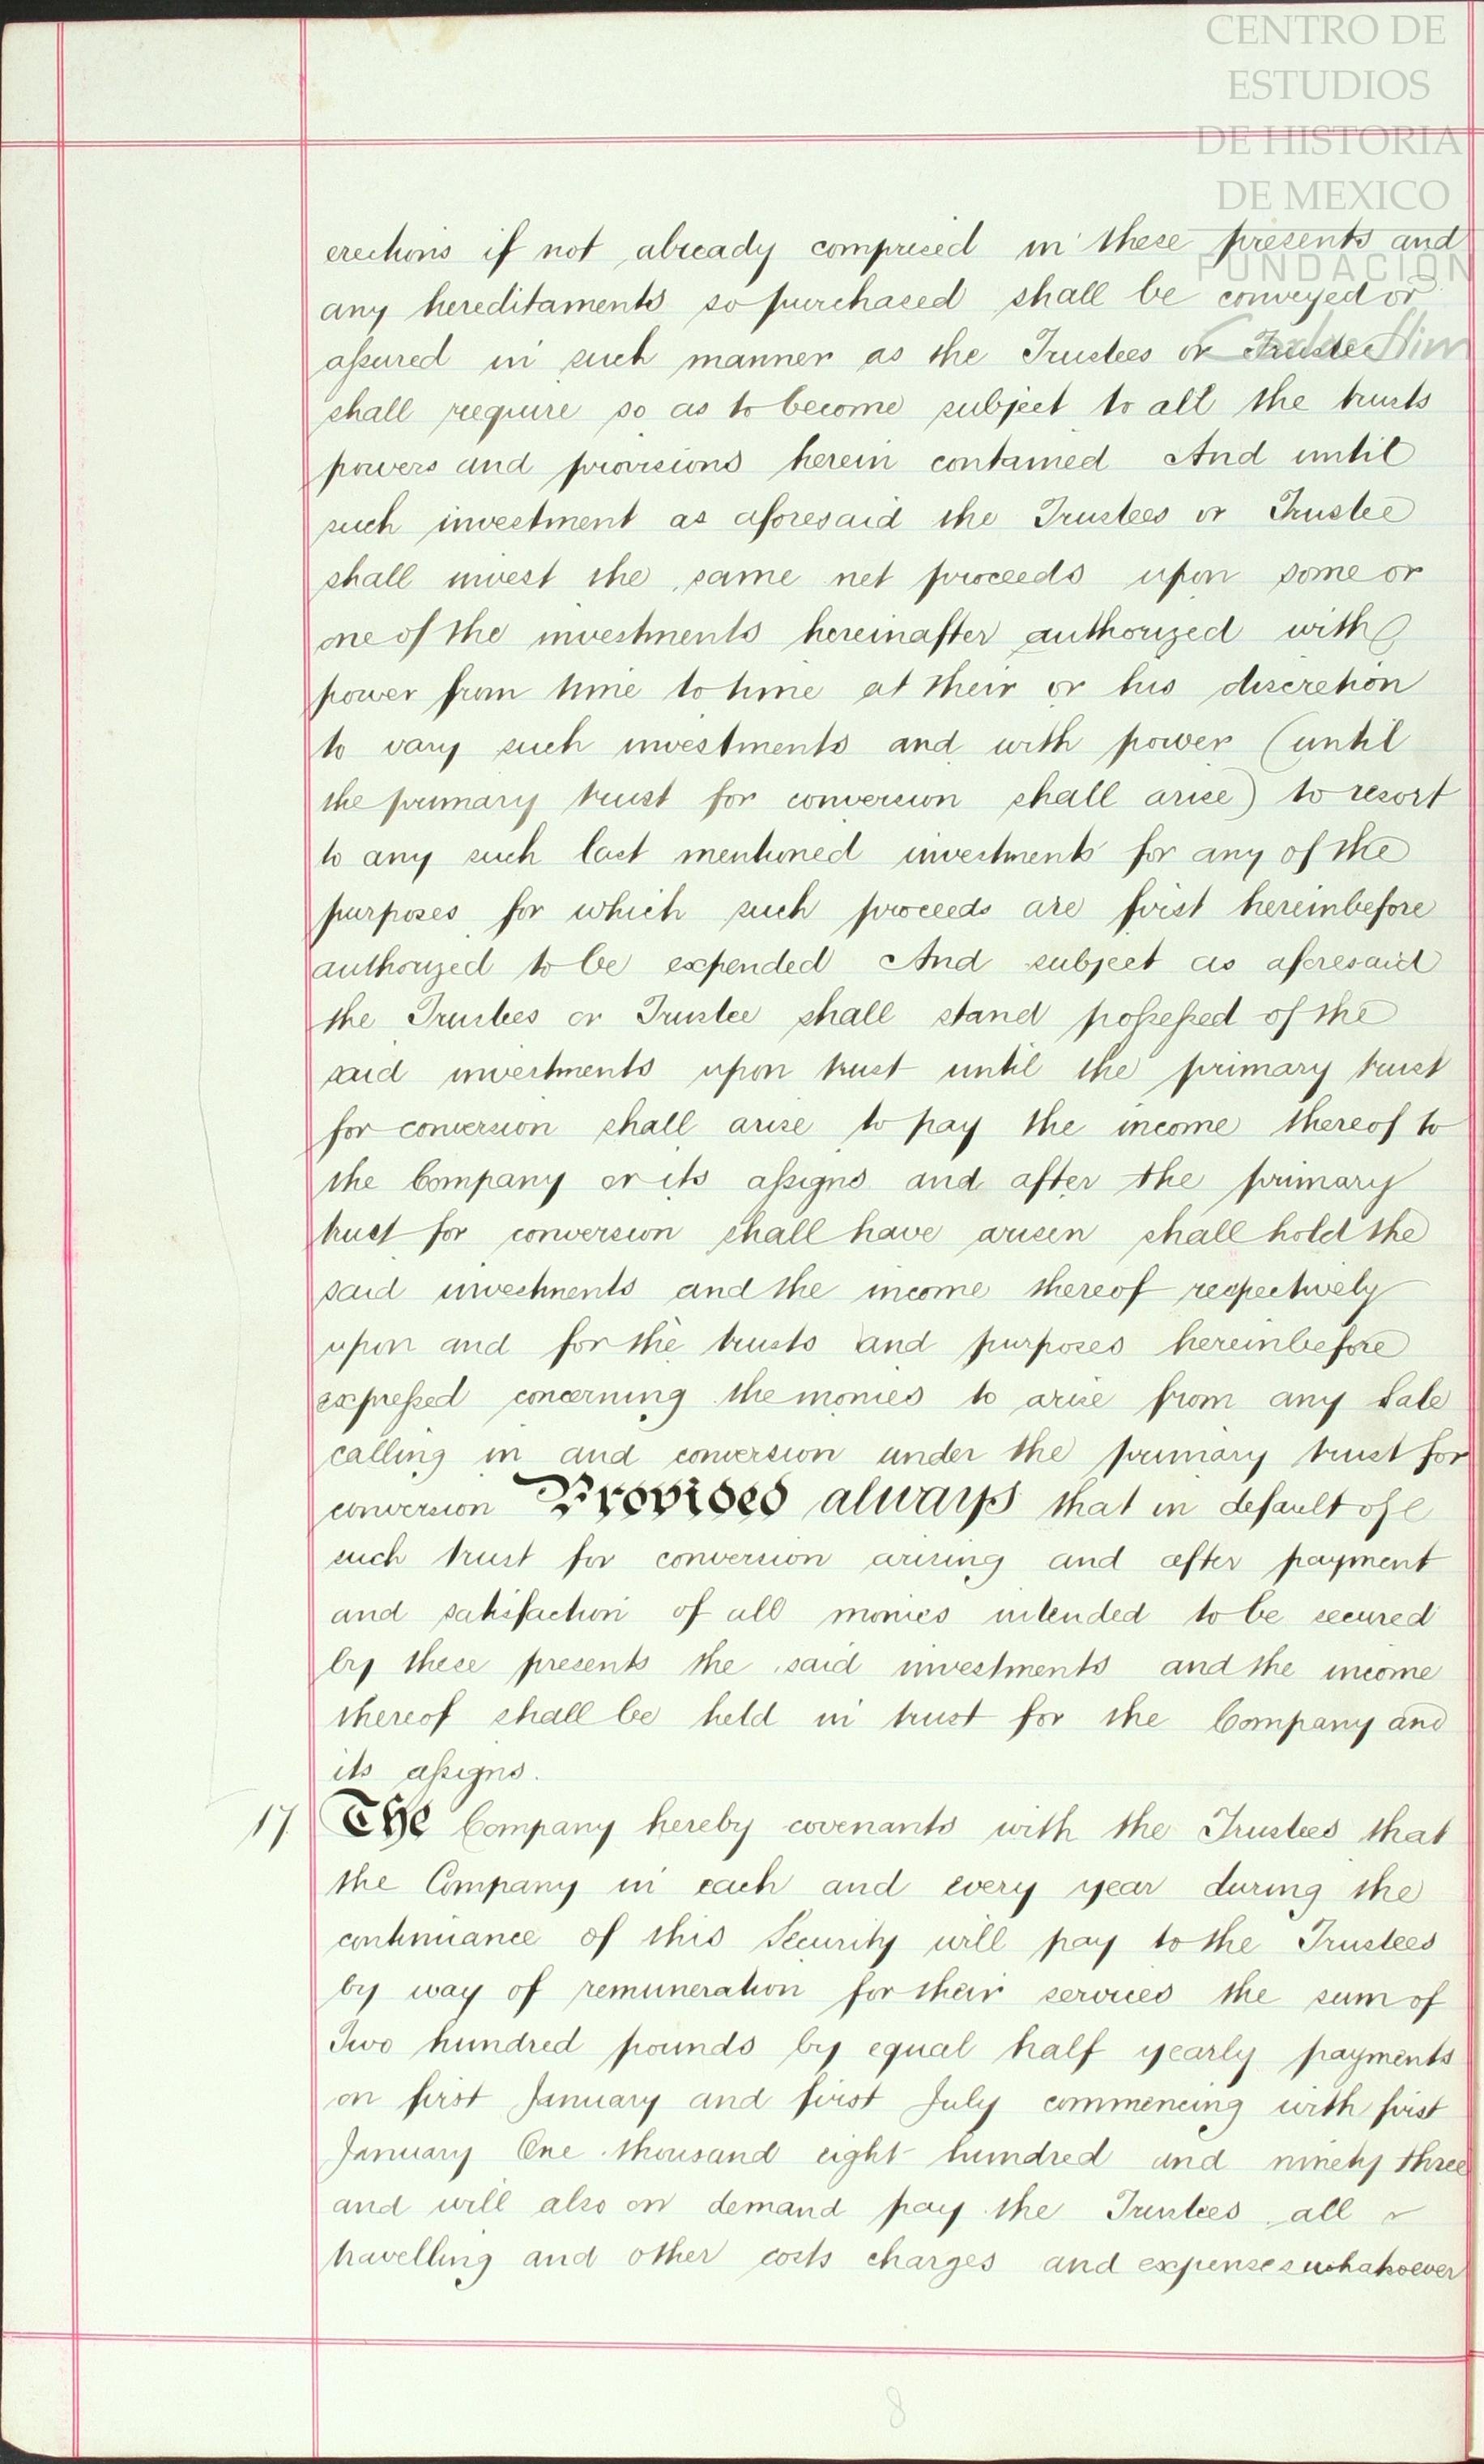 CENTRO DE
ESTUDIOS
DE HISTORIA
DE MEXICO
FUNDACIÓN
Carlos Slim
erections if not already comprised in these presents and
any hereditaments so purchased shall be conveyed or
assured in such manner as the Trustees or Trustee
shall require so as to become subject to all the trusts
powers and provisions herein contained And until
such investment as aforesaid the Trustees or Trustee
shall invest the same net proceeds upon some or
one of the investments hereinafter authorized with
power from time to time at their or his discretion
to vary such investments and with power (until
the primary trust for conversion shall arise) to resort
to any such last mentioned investments for any of the
purposes for which such proceeds are first hereinbefore
authorized to be expended And subject as aforesaid
the Trustees or Trustee shall stand possessed of the
said investments upon trust until the primary trust
for conversion shall arise to pay the income thereof to
the Company or its assigns and after the primary
trust for conversion shall have arisen shall hold the
said investments and the income thereof respectively
upon and for the trusts and purposes hereinbefore
expressed concerning the monies to arise from any sale
calling in and conversion under the primary trust for
conversion Provided always that in default of
such trust for conversion arising and after payment
and satisfaction of all monies intended to be secured
by these presents the said investments and the income
thereof shall be held in trust for the Company and
its assigns.
17. The Company hereby covenants with the Trustees that
the Company in each and every year during the
continuance of this Security will pay to the Trustees
by way of remuneration for their services the sum of
Two hundred pounds by equal half yearly payments
on first January and first July commencing with first
January One thousand eight hundred and ninety three
and will also on demand pay the Trustees all
travelling and other costs charges and expenses whatsoever
8